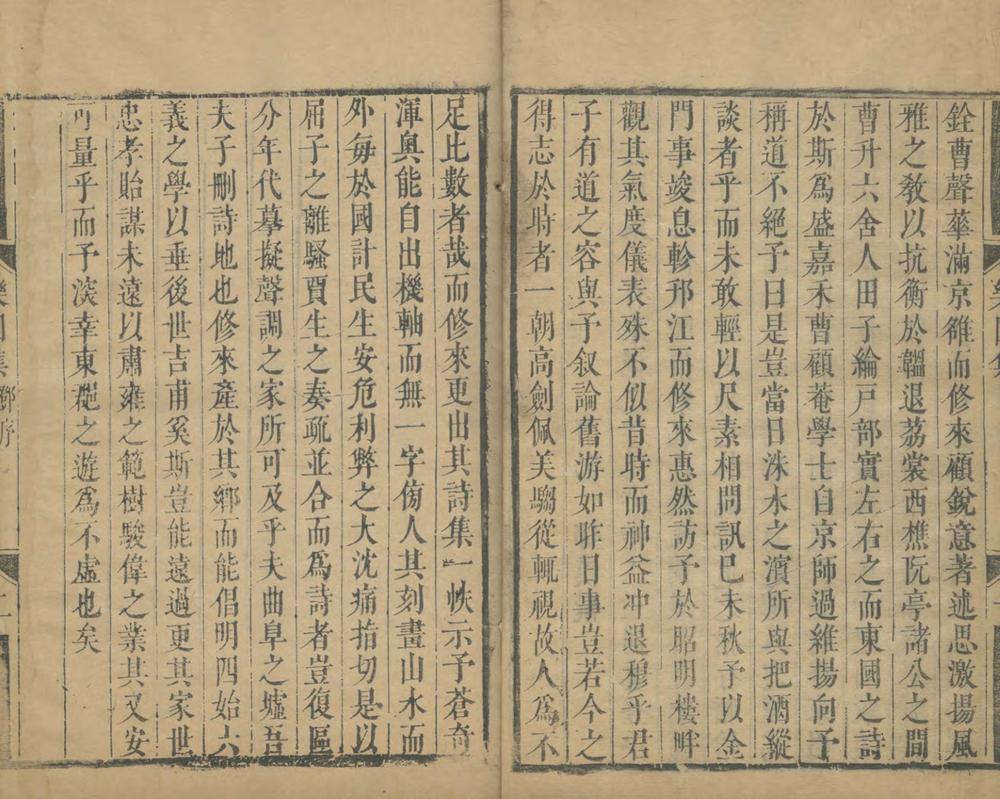 銓曹聲華滿京雒而修來顧銳意著述思激揚風
雅之敎以抗衡於韞退荔裳西樵阮亭諸公之間
曹升六舍人田子綸戸部實左右之而東國之詩
於斯爲盛嘉禾曹顧菴學士自京師過維揚向予
稱道不絕予曰是豈當日洙水之濱所與把酒縱
談者乎而未敢輕以尺素相問訊巳未秋予以金
門事竣息軫邗江而修來惠然訪予於昭明樓畔
觀其氣度儀表殊不似昔時而神益冲退穆乎君
子有道之容與予叙論舊游如昨日事豈若今之
得志於時者一朝高劍佩美騶從輒視故人爲不
足比數者哉而修來更出其詩集一帙示予蒼奇
渾奥能自出機軸而無一字傍人其刻畫山水而
外每於國計民生安危利弊之大沈痛指切是以
屈子之離騷賈生之奏疏並合而爲詩者豈復區
分年代摹擬聲調之家所可及乎夫曲阜之墟吾
夫子刪詩地也修來產於其鄉而能倡明四始六
義之學以垂後世吉甫奚斯豈能遠過更其家世
忠孝貽謀未遠以肅雍之範樹駿偉之業其又安
可量乎而予淡幸東菟之遊爲不虛也矣